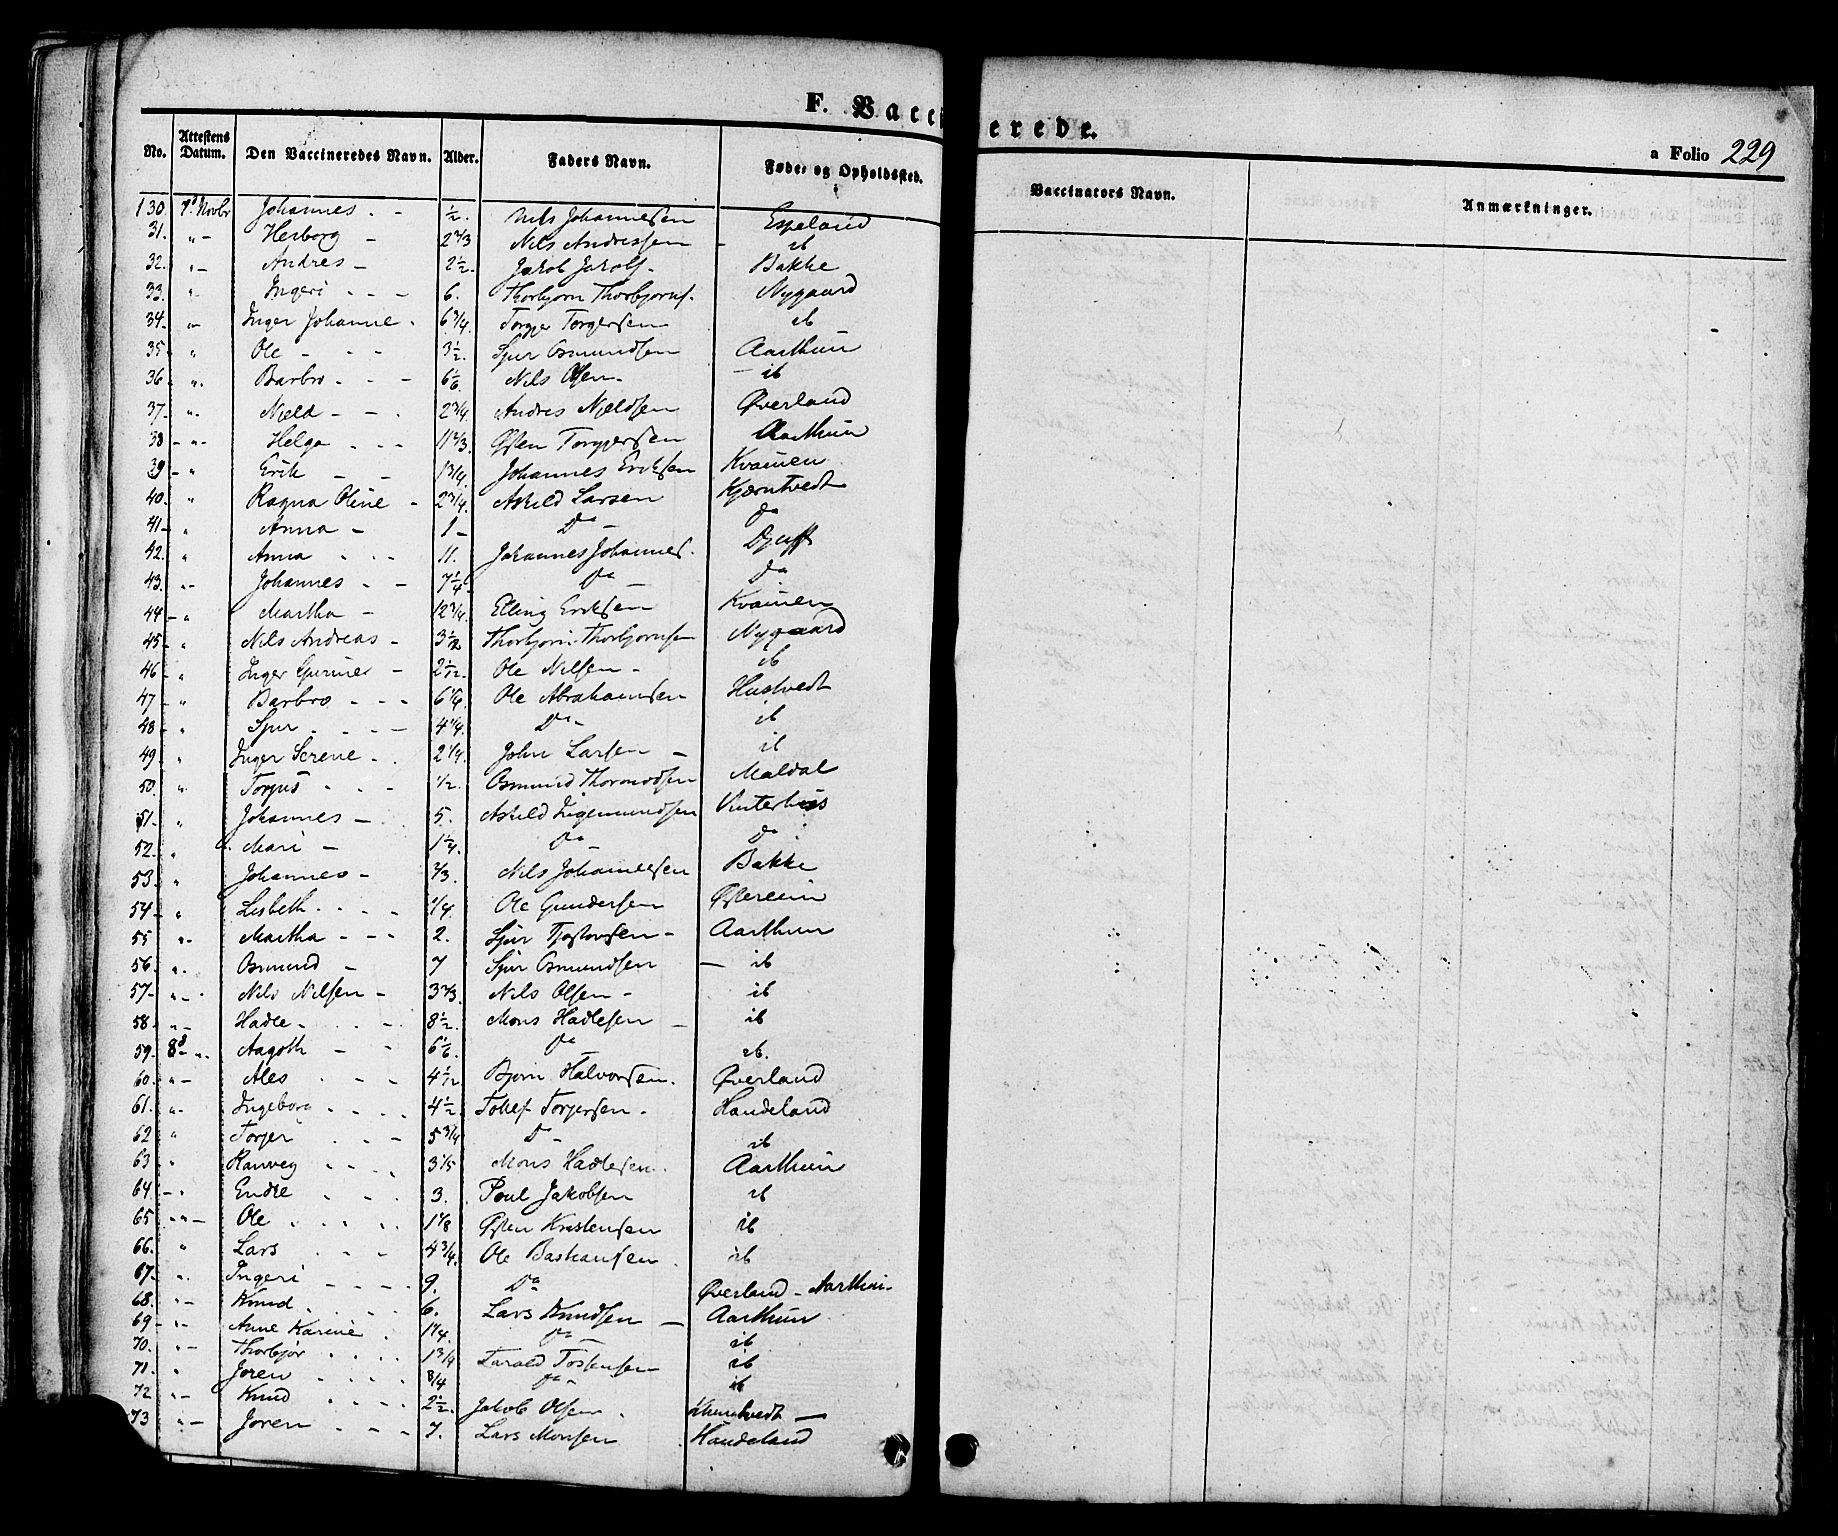 F. Vacci erede.
a Folio 229
No. Attestens Datum. Den Vaccineredes Navn. Alder. Faders Navn. Føde- og Opholdssted. Vaccinators Navn. Anmærkninger.
130. 7d Novbr Johannes - - 1/2. Nils Johannesen Espeland
31. " - Herborg - 2 2/3 Nils Andressen - ib
32. " - Andres - Jakob Jakobs. Bakke
33. " - Ingeri - - - 6. Thorbjørn Thorbjørns. Nygaard
34. " Inger Johanne . 6 3/4. Torger Torgersen ib
35. " Ole - - - 3 1/2. Sjur Osmundsen Aarthun
36. " Barbro - - - 6 1/6. Nils Olsen - - ib
37. " Njeld - - . 2 3/4. Andres Njeldsen Øverland
38 - " - Helga - - - 11 2/3. Østen Torgersen Aarthun
39 - " Erik - - 1 3/4. Johannes Eriksen Kvamen
40. " Ragna Oline - 2 3/4. Askild Larsen Kjærntvedt
41 - " Anna - 1 - Do - Do
42. " Anna - - - 11. Johannes Johannes. 
43. " - Johannes - - 7 1/4. Do - Do
44 - " Martha - 12 3/4. Elling Eriksen Kvamen
45 - " Nils Andreas - 3 1/2 Thorbjørn Thorbjørnsen Nygaard
46 - " Inger Gurine - 2 1/12. Ole Nilsen - ib
47 - " Barbro - - - 6 1/6. Ole Abrahamsen Hustvedt
48 - " Sjur . . . - 4 1/4. Do - ib
49. " Inger Serene - . 2 1/4. John Larsen - ib
50. " Torjus - - - 1/2. Osmund Thormodsen Maldal
51 - " Johannes - 5. Askild Ingemundsen Vinterhus
52. " Mari - 1 1/4. Do - Do
53. " Johannes - 2/3. Nils Johannesen Bakke
54 - " Lisbeth - - - 1/4. Ole Gundersen
55 " - Martha - - - 2. Sjur Tjostovsen - Aarthun
56. " Osmund - 7 Sjur Osmundsen - ib
57 - " - Nils Nilsen - 3 2/3. Nils Olsen - ib
58. " - Hadle - . . - 8 1/2. Mons Hadlesen - ib
59. 8d " . Aagoth - - 6 1/6. Do - ib.
60. " - Ales . - - 4 1/12. Bjørn Halvorsen. Øverland
61. " Ingeborg - - - . 4 1/2. Tollef Torjersen - Handeland
62 " Torjer . . - 5 3/4 Do - ib
63. " Ranveg - - - . 3 1/5 Mons Hadlesen. Aarthun
64 - " Endre . - . 3. Poul Jakobsen ib
65 " - Ole . . . . 1 1/8 Østen Kristensen ib
66. " Lars . - - 4 3/4. Ole Bastiansen . ib
67 - " Ingeri - - - . 9. Do Øverland - Aarthun.
68. " - Knud . . . . 6. Lars Knudsen - Aarthun
69 - " - Anne Karine . 1 1/4. Do ib
70. " - Thorbjør . . . . 1 3/4 Tarald Tostensen ib
71. " Joren . . . . 3/4 Do - ib
72 " - Knud . . . . 2 1/2. Jakob Olsen .
73 " - Joren - - - 7. Lars Monsen . Handeland